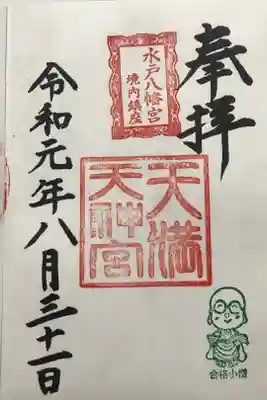 奉拝
水戸八幡宮
境内鎮座
天満
天神宮
令和元年八月三十一日
合格小僧